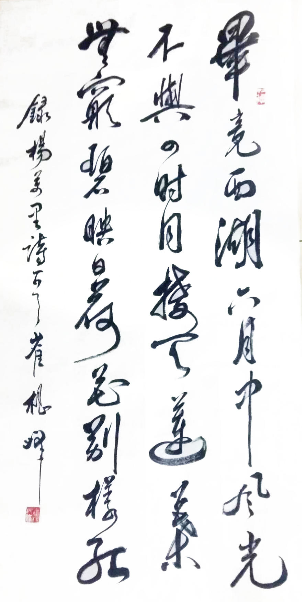 畢竟西湖六月中風光
不與四時同接天蓮葉
無窮碧映日荷花别樣紅
錄楊萬里詩